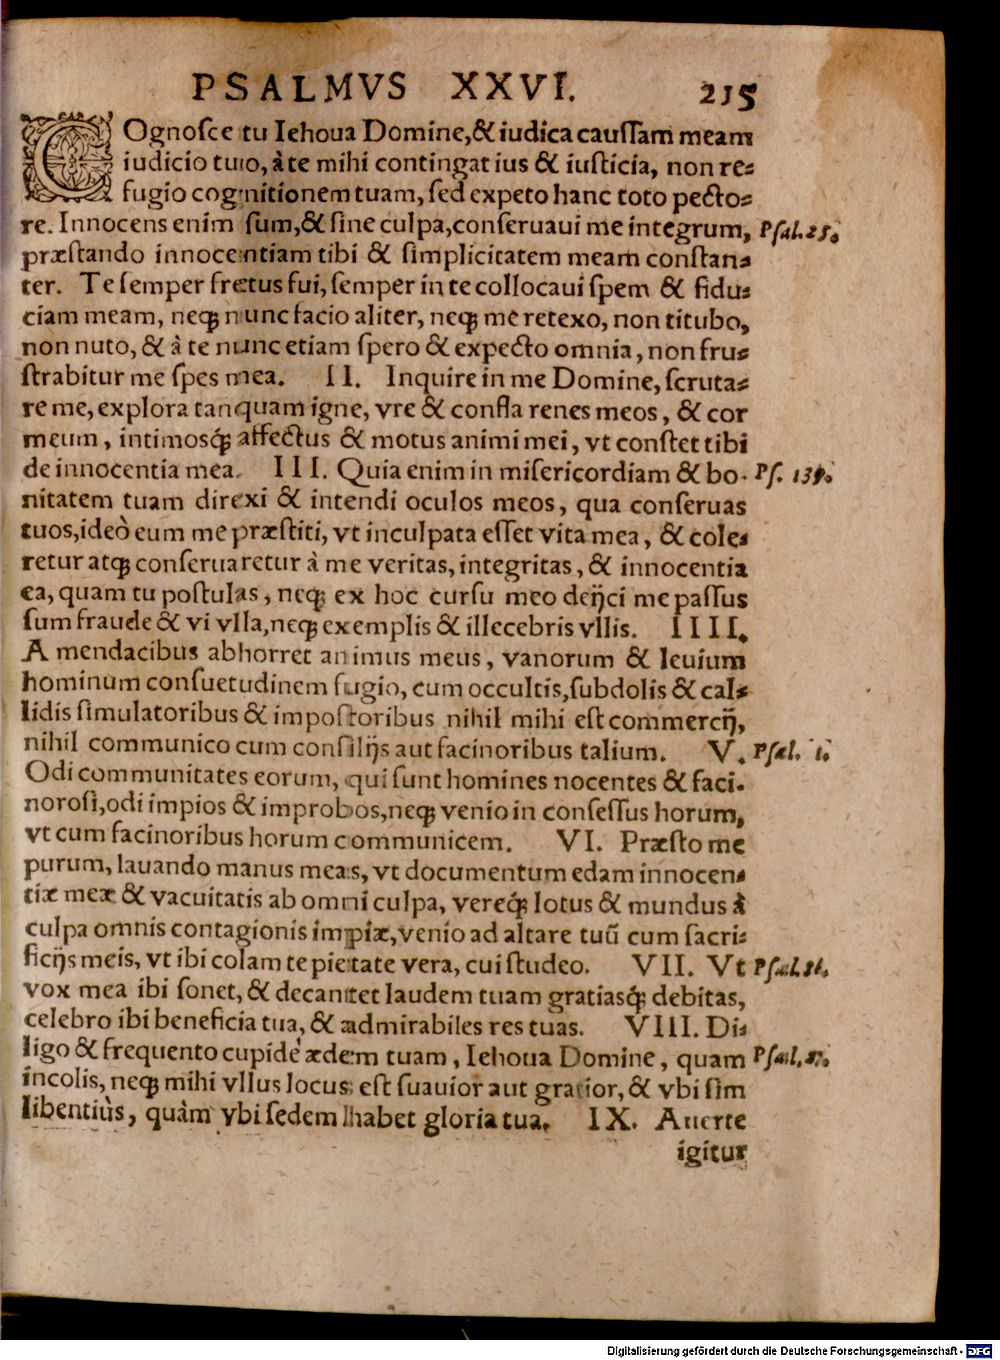 PSALMVS XXVI. 215
COgnoſce tu Iehoua Domine,& iudica cauſſam meam
iudicio tuo, à te mihi contingat ius & iuſticia, non re-
fugio cognitionem tuam, ſed expeto hanc toto pecto-
re. Innocens enim ſum,& ſine culpa,conſeruaui me integrum, Pſal. 25.
præſtando innocentiam tibi & ſimplicitatem meam conſtan-
ter. Te ſemper fretus fui, ſemper in te collocaui ſpem & fidu-
ciam meam, neqꝫ nunc facio aliter, neqꝫ me retexo, non titubo,
non nuto, & à te nunc etiam ſpero & expecto omnia, non fru-
ſtrabitur me ſpes mea. II. Inquire in me Domine, ſcruta-
re me, explora tanquam igne, vre & confla renes meos, & cor
meum, intimosqꝫ́ affectus & motus animi mei, vt conſtet tibi
de innocentia mea. III. Quia enim in miſericordiam & bo- Pſ. 139.
nitatem tuam direxi & intendi oculos meos, qua conſeruas
tuos,ideò eum me præſtiti, vt inculpata eſſet vita mea, & cole-
retur atqꝫ conſeruaretur à me veritas, integritas, & innocentia
ea, quam tu poſtulas, neqꝫ ex hoc curſu meo deijci me paſſus
ſum fraude & vi vlla,neqꝫ exemplis & illecebris vllis. IIII.
A mendacibus abhorret animus meus, vanorum & leuium
hominum conſuetudinem fugio, cum occultis,ſubdolis & cal-
lidis ſimulatoribus & impoſtoribus nihil mihi eſt commercij,
nihil communico cum conſilijs aut facinoribus talium. V. Pſal. 1.
Odi communitates eorum, qui ſunt homines nocentes & faci-
noroſi,odi impios & improbos,neqꝫ venio in conſeſſus horum,
vt cum facinoribus horum communicem. VI. Præſto me
purum, lauando manus meas, vt documentum edam innocen-
tiæ meæ & vacuitatis ab omni culpa, vereqꝫ́ lotus & mundus à
culpa omnis contagionis impiæ,venio ad altare tuũ cum ſacri-
ficijs meis, vt ibi colam te pietate vera, cui ſtudeo. VII. Vt Pſal.
vox mea ibi ſonet, & decantet laudem tuam gratiasqꝫ́ debitas,
celebro ibi beneficia tua, & admirabiles res tuas. VIII. Di-
ligo & frequento cupidè ædem tuam, Iehoua Domine, quam Pſal.
incolis, neqꝫ mihi vllus locus eſt ſuauior aut gratior, & vbi ſim
libentiùs, quàm vbi ſedem habet gloria tua. IX. Auerte
igitur
Digitalisierung gefördert durch die Deutsche Forschungsgemeinschaft - DFG